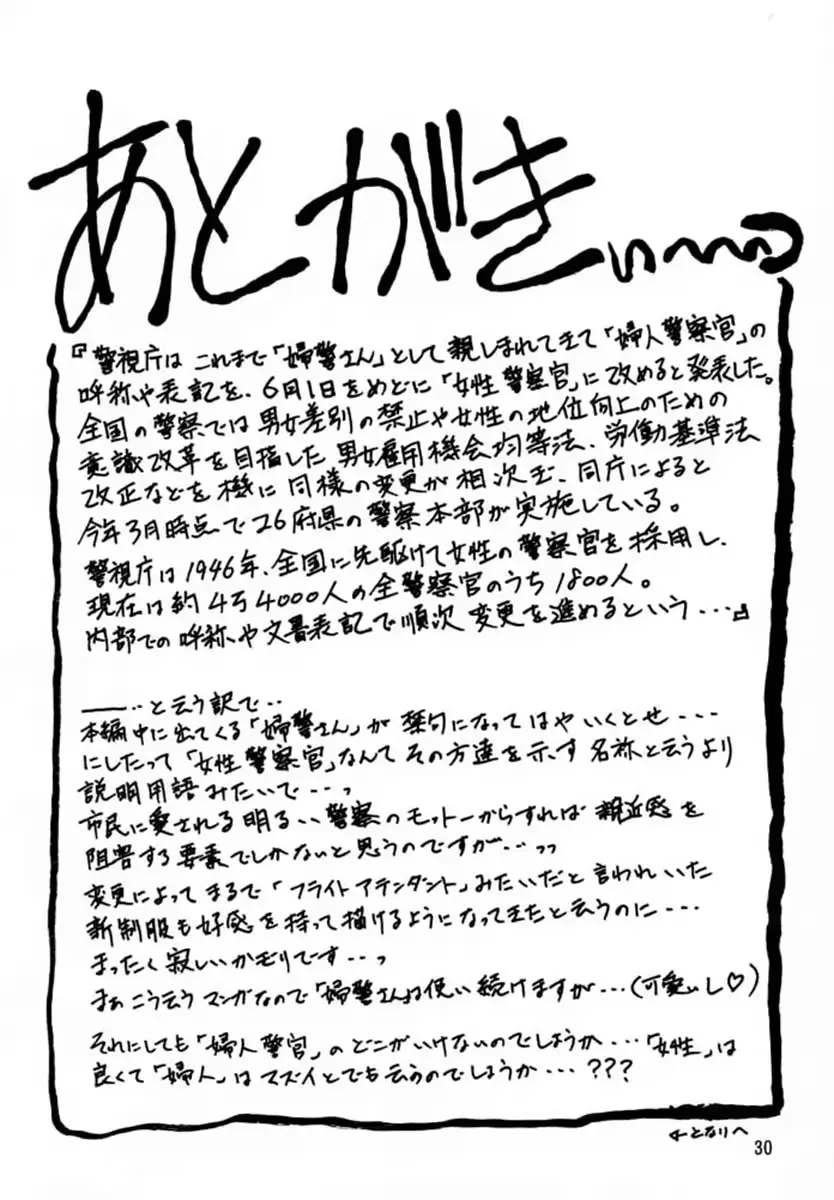 あとがきぃ〜〜〜っ
『警視庁は これまで「婦警さん」として親しまれてきて「婦人警察官」の
呼称や表記を、6月1日をめどに「女性警察官」に改めると発表した。
全国の警察では男女差別の禁止や女性の地位向上のための
意識改革を目指した 男女雇用機会均等法、労働基準法
改正などを機に 同様の変更が相次ぎ、同庁によると
今年3月時点で26府県の警察本部が実施している。
警視庁は1946年、全国に先駆けて女性の警察官を採用し、
現在は約4万4000人の全警察官のうち1800人。
内部での呼称や文書表記で順次変更を進めるという・・・』
――‥と云う訳で‥
本編中に出てくる「婦警さん」が禁句になってはやいくとせ・・・
にしたって「女性警察官」なんてその方達を示す名称と云うより
説明用語みたいで・・・っ
市民に愛される明るい警察のモットーからすれば親近感を
阻害する要素でしかないと思うのですが・・・っっ
変更によってまるで「フライトアテンダント」みたいだと言われいた
新制服も好感を持って描けるようになってきたと云うのに・・・
まったく寂しいかぎりです・・っ
まぁこう云うマンガなので「婦警さん」は使い続けますが・・・(可愛いし♡)
それにしても「婦人警官」のどこがいけないのでしょうか・・・「女性」は
良くて「婦人」はマズイとでも云うのでしょうか・・・???
←となりへ
30